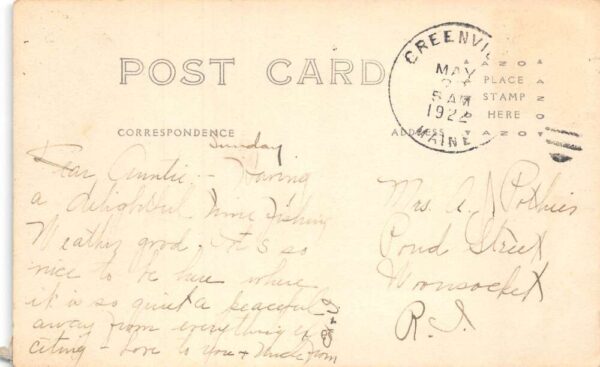 POST CARD
CORRESPONDENCE
ADDRESS
GREENVI
MAY
5 AM
1922
MAINE
AZOA
PLACE
STAMP
HERE
AZO
AZOA
Sunday
Dear Auntie - Having
a delightful time fishing
Weather good. It's so
nice to be here where
it is so quiet & peaceful
away from everything ex
citing - Love to you & Uncle from
Mrs. A. J. Pothier
Pond Street
Woonsocket
R. I.